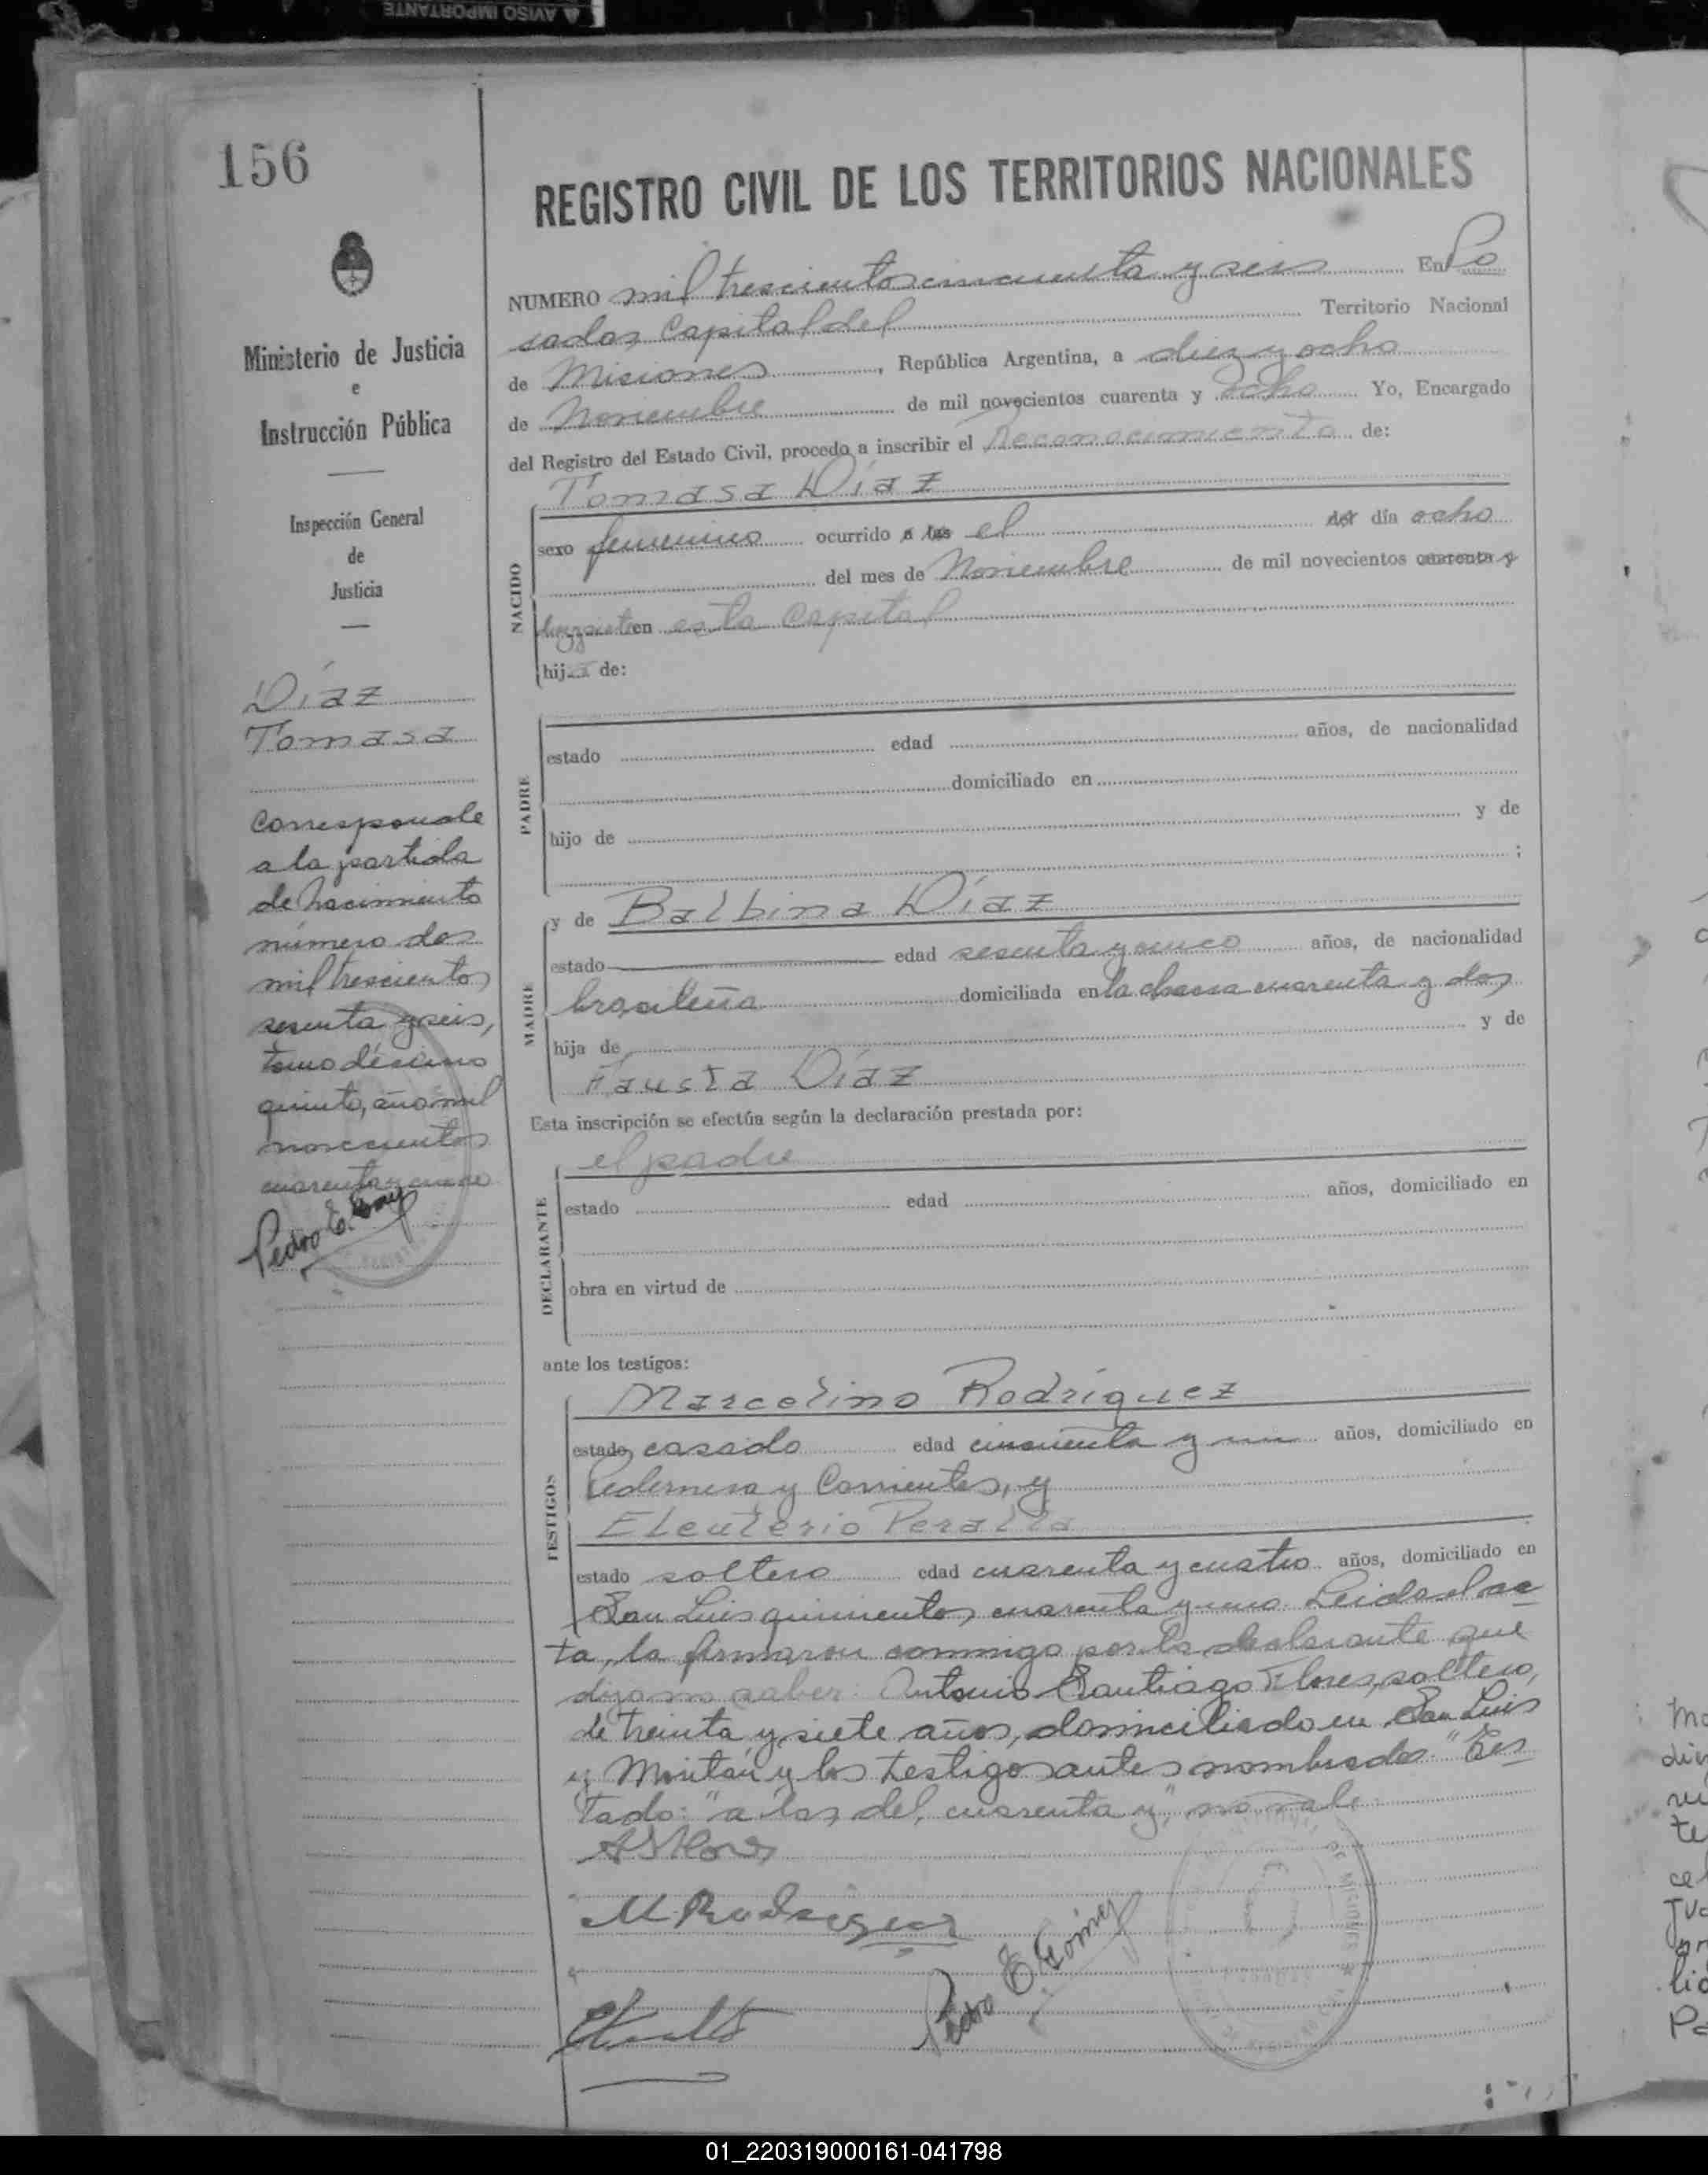 AVISO IMPORTANTE
156
REGISTRO CIVIL DE LOS TERRITORIOS NACIONALES
Ministerio de Justicia
e
Instrucción Pública
Inspección General
de
Justicia
Díaz
Tomasa
Corresponde
a la partida
de Nacimiento
número dos
mil trescientos
sesenta y seis,
tomo décimo
quinto, año mil
novecientos
cuarenta y
Pedro E.
NUMERO mil trescientos cincuenta y seis En Po
sadas, Capital del Territorio Nacional
de Misiones, República Argentina, a diez y ocho
de Noviembre de mil novecientos cuarenta y ocho Yo, Encargado
del Registro del Estado Civil, procedo a inscribir el Reconocimiento de:
Tomasa Díaz
NACIDO
sexo femenino ocurrido a las el del día ocho
del mes de Noviembre de mil novecientos cuarenta y
diezysiete en esta Capital
hija de:
PADRE
estado edad años, de nacionalidad
domiciliado en
hijo de y de
;
MADRE
y de Balbina Díaz
estado edad sesenta y años, de nacionalidad
brasileña domiciliada en la chacra cuarenta y dos,
hija de y de
Fausta Díaz
Esta inscripción se efectúa según la declaración prestada por:
DECLARANTE
el padre
estado edad años, domiciliado en
obra en virtud de
ante los testigos:
TESTIGOS
Marcelino Rodríguez
estado, casado edad cincuenta y un años, domiciliado en
Pedernera y Corrientes, y
Eleuterio Peralta
estado soltero edad cuarenta y cuatro años, domiciliado en
San Luis quinientos cuarenta y uno. Leida el ac
ta, la firmaron conmigo por la declarante que
dijo no saber: Antonio Santiago Flores, soltero,
de treinta y siete años, domiciliado en San Luis
y Mitán y los testigos antes nombrados. "Tes
tado: "a las, del, cuarenta y", no vale.
A S Flores
M. Rodriguez
Pedro E. Gómez
E Peralta
01_220319000161-041798